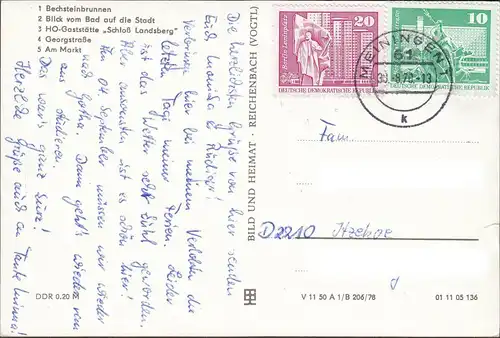 1 Bechsteinbrunnen
2 Blick vom Bad auf die Stadt
3 HO-Gaststätte „Schloß Landsberg"
4 Georgstraße
5 Am Markt
Die herzlichsten Grüße von hier senden
Euch
Verbringe hier bei meinem Verlobten die
letzten Tage meiner Ferien. Leider
ist das Wetter sehr kühl geworden.
Aber ansonsten ist es schön hier!
Am 04. September müssen wir wieder
nach Gotha. Dann geht's wieder
studieren.
Das wär's ganz kurz!
Herzliche Grüße auch an Tante
DDR 0,20 M
BILD UND HEIMAT · REICHENBACH (VOGTL)
V 11 50 A 1/B 206/78
01 11 05 136
20
Berlin, Leninplatz
DEUTSCHE DEMOKRATISCHE REPUBLIK
10
DEUTSCHE DEMOKRATISCHE REPUBLIK
MEININGEN 1
61
30.-8.78-13
k
Fam.
D2210 Itzehoe